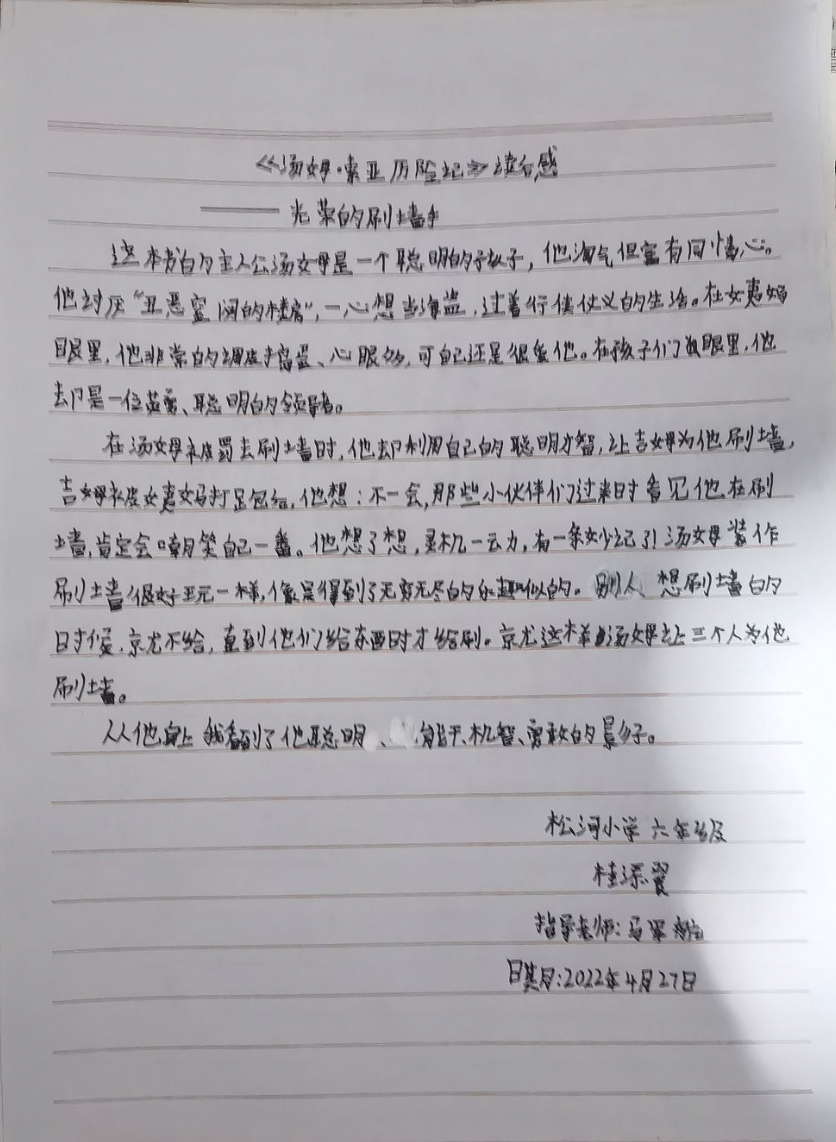 《汤姆·索亚历险记》读后感
—— 光荣的刷墙手
这本书的主人公汤姆是一个聪明的孩子,他淘气但富有同情心。
他讨厌“丑恶窒闷的楼房”,一心想当海盗,过着行侠仗义的生活。在姨妈
眼里,他非常的调皮捣蛋、心眼多,可自己还是很爱他。在孩子们眼里,他
却是一位英勇、聪明的领导者。
在汤姆被罚去刷墙时,他却利用自己的聪明才智,让吉姆为他刷墙,
吉姆被姨妈打足包后,他想:不一会,那些小伙伴们过来时看见他在刷
墙,肯定会嘲笑自己一番。他想了想,灵机一动,有一条妙记引汤姆装作
刷墙很好玩一样,像是得到了无穷无尽的乐趣似的。别人想刷墙的
时候,就不给,直到他们给东西时才给刷。就这样汤姆让三个人为他
刷墙。
从他身上我看到了他聪明、能干、机智、勇敢的影子。
松河小学六年级
桂添翼
指导老师:马军
日期:2022年4月27日